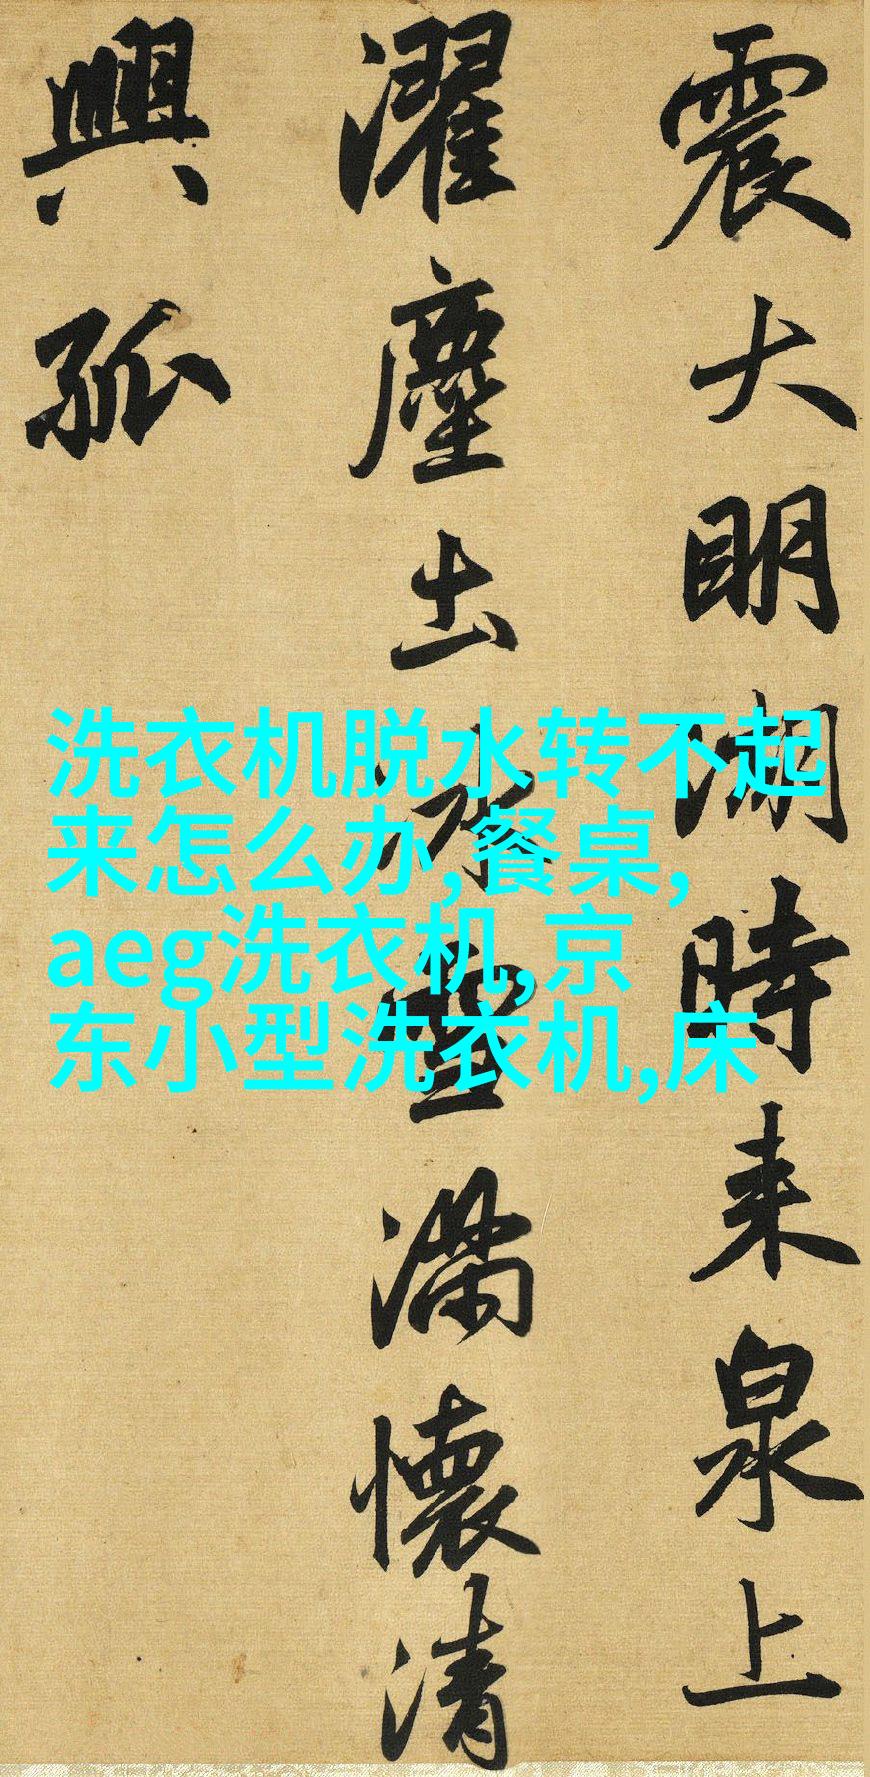 震大明湖時来泉上
濯塵出冰雪满懷清
興孤
洗衣机脱水转不起
来怎么办,餐桌,
aeg洗衣机,京
东小型洗衣机,床